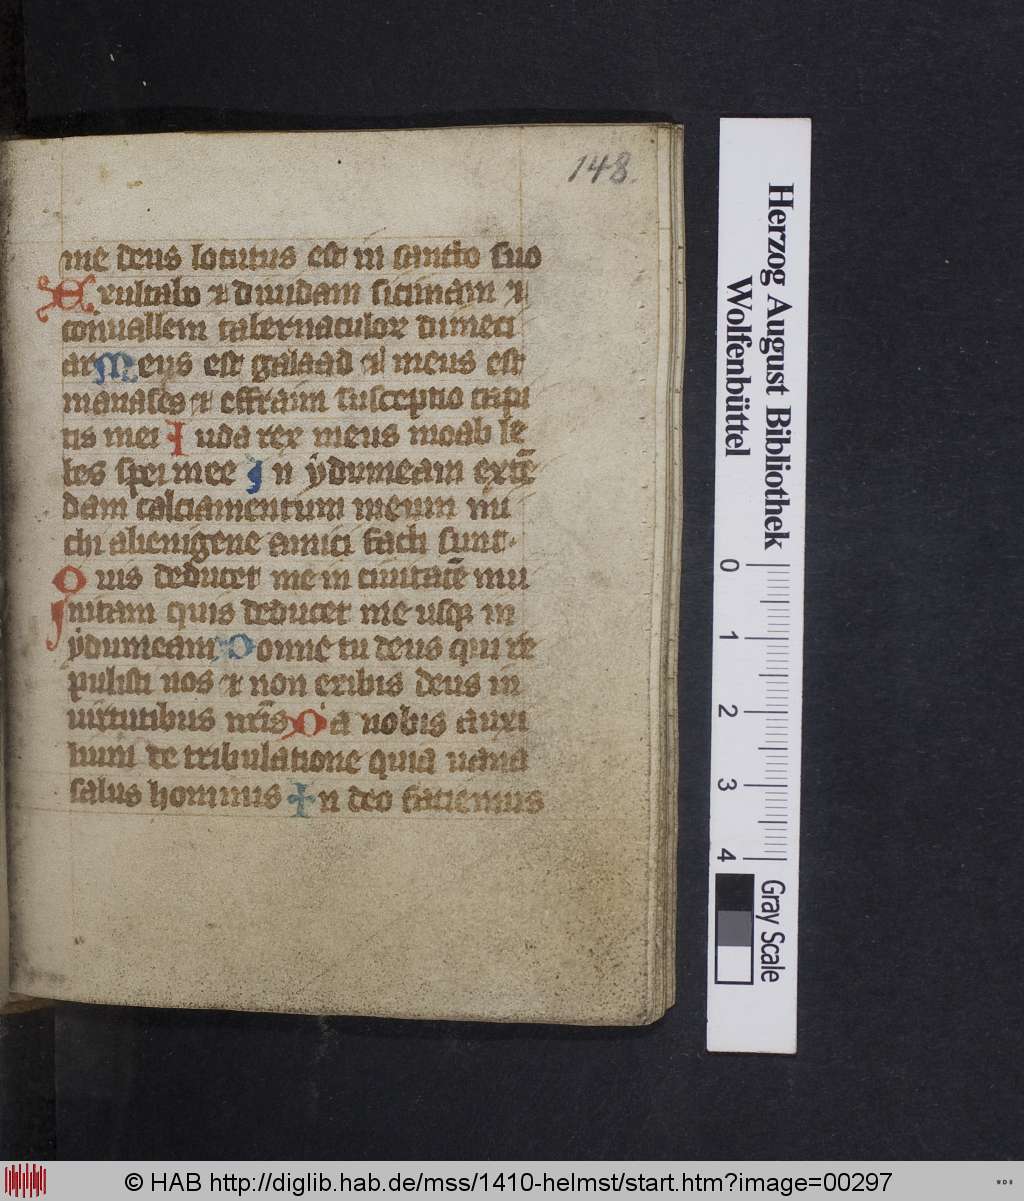 148.
me deus locutus est in sancto suo
Exultabo ⁊ diuidam sicimam ⁊
conuallem tabernaculoꝝ dimeti
ar Meus est galaad ⁊ meus est
manases ⁊ effraim susceptio capi
tis mei Iuda rex meus moab le
bes spei mee In ẏdumeam extē
dam calciamentum meum mi
chi alienigene amici facti sunt.
Quis deducet me in ciuitatē mu
nitam quis deducet me usqꝫ in
ẏdumeam Nonne tu deus qui re
pulisti nos ⁊ non exibis deus in
uirtutibus nr̄is Da nobis auxi
lium de tribulatione quia uana
salus hominis In deo faciemus
Herzog August Bibliothek
Wolfenbüttel
0 1 2 3 4
Gray Scale
© HAB http://diglib.hab.de/mss/1410-helmst/start.htm?image=00297